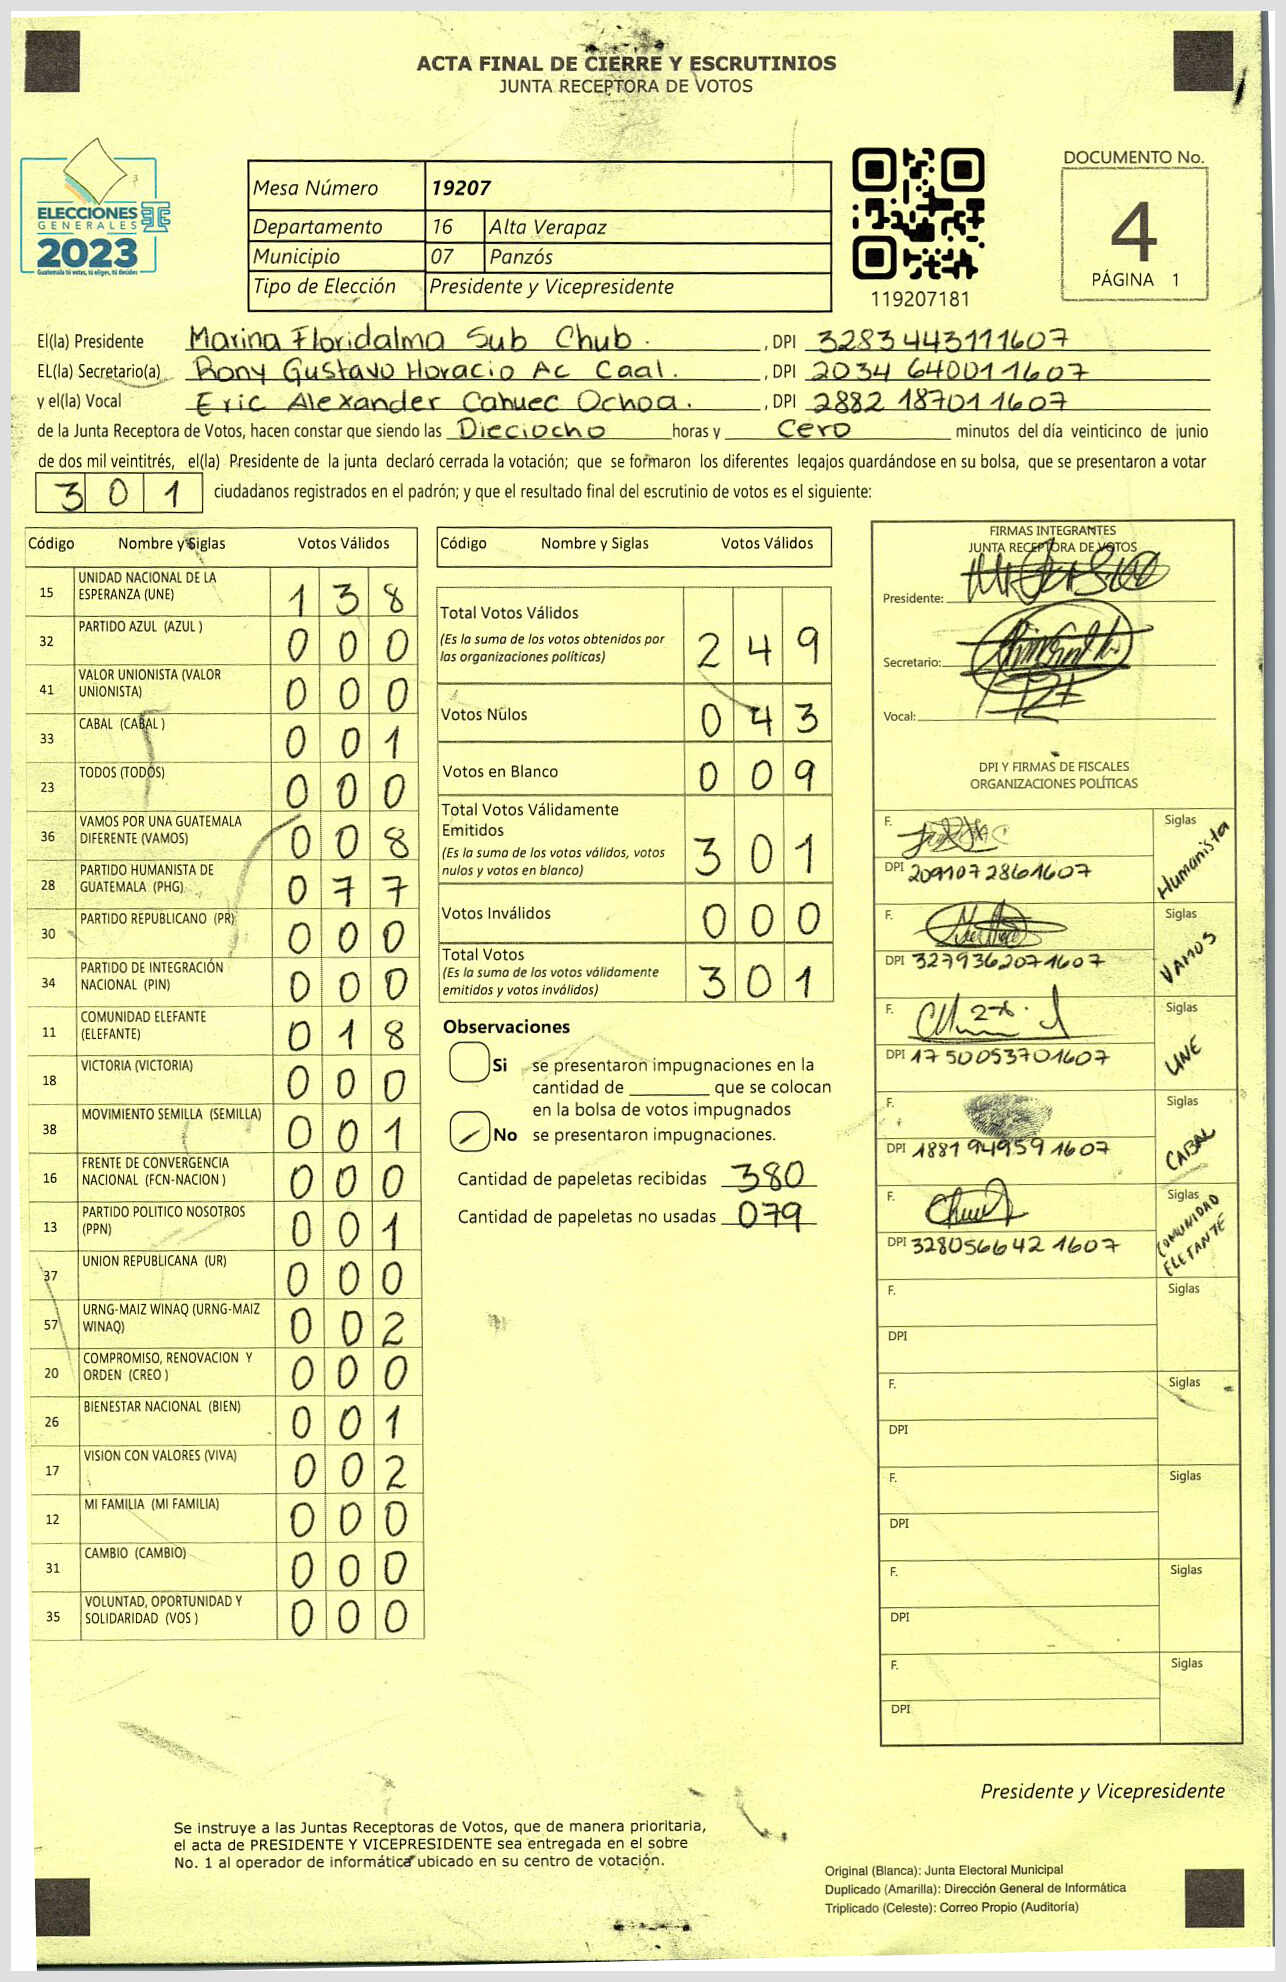 ACTA FINAL DE CIERRE Y ESCRUTINIOS
JUNTA RECEPTORA DE VOTOS
ELECCIONES
GENERALES
2023
Guatemala tú votas, tú eliges, tú decides
Mesa Número 19207
Departamento 16 Alta Verapaz
Municipio 07 Panzós
Tipo de Elección Presidente y Vicepresidente
119207181
DOCUMENTO No.
4
PÁGINA 1
El(la) Presidente Marina Floridalma Sub Chub. , DPI 3283443111607
EL(la) Secretario(a) Rony Gustavo Horacio Ac Caal. , DPI 2034 64001 1607
y el(la) Vocal Eric Alexander Cahuec Ochoa. , DPI 2882 18701 1607
de la Junta Receptora de Votos, hacen constar que siendo las Dieciocho horas y Cero minutos del día veinticinco de junio
de dos mil veintitrés, el(la) Presidente de la junta declaró cerrada la votación; que se formaron los diferentes legajos guardándose en su bolsa, que se presentaron a votar
301 ciudadanos registrados en el padrón; y que el resultado final del escrutinio de votos es el siguiente:
Código Nombre y Siglas Votos Válidos
15 UNIDAD NACIONAL DE LA ESPERANZA (UNE) 138
32 PARTIDO AZUL (AZUL ) 000
41 VALOR UNIONISTA (VALOR UNIONISTA) 000
33 CABAL (CABAL ) 001
23 TODOS (TODOS) 000
36 VAMOS POR UNA GUATEMALA DIFERENTE (VAMOS) 008
28 PARTIDO HUMANISTA DE GUATEMALA (PHG) 077
30 PARTIDO REPUBLICANO (PR) 000
34 PARTIDO DE INTEGRACIÓN NACIONAL (PIN) 000
11 COMUNIDAD ELEFANTE (ELEFANTE) 018
18 VICTORIA (VICTORIA) 000
38 MOVIMIENTO SEMILLA (SEMILLA) 001
16 FRENTE DE CONVERGENCIA NACIONAL (FCN-NACION ) 000
13 PARTIDO POLITICO NOSOTROS (PPN) 001
37 UNION REPUBLICANA (UR) 000
57 URNG-MAIZ WINAQ (URNG-MAIZ WINAQ) 002
20 COMPROMISO, RENOVACION Y ORDEN (CREO ) 000
26 BIENESTAR NACIONAL (BIEN) 001
17 VISION CON VALORES (VIVA) 002
12 MI FAMILIA (MI FAMILIA) 000
31 CAMBIO (CAMBIO) 000
35 VOLUNTAD, OPORTUNIDAD Y SOLIDARIDAD (VOS ) 000
Código Nombre y Siglas Votos Válidos
Total Votos Válidos 249
(Es la suma de los votos obtenidos por
las organizaciones políticas)
Votos Nulos 043
Votos en Blanco 009
Total Votos Válidamente
Emitidos 301
(Es la suma de los votos válidos, votos
nulos y votos en blanco)
Votos Inválidos 000
Total Votos 301
(Es la suma de los votos válidamente
emitidos y votos inválidos)
Observaciones
Si se presentaron impugnaciones en la
cantidad de ________ que se colocan
en la bolsa de votos impugnados
No se presentaron impugnaciones.
Cantidad de papeletas recibidas 380
Cantidad de papeletas no usadas 079
FIRMAS INTEGRANTES
JUNTA RECEPTORA DE VOTOS
Presidente:
Secretario:
Vocal:
DPI Y FIRMAS DE FISCALES
ORGANIZACIONES POLÍTICAS
F. Siglas Humanista
DPI 2091072861607
F. Siglas VAMOS
DPI 3279362071607
F. Siglas UNE
DPI 1750053701607
F. Siglas CABAL
DPI 1881949591607
F. Siglas COMUNIDAD ELEFANTE
DPI 3280566421607
F. Siglas
DPI
F. Siglas
DPI
F. Siglas
DPI
F. Siglas
DPI
F. Siglas
DPI
Presidente y Vicepresidente
Se instruye a las Juntas Receptoras de Votos, que de manera prioritaria,
el acta de PRESIDENTE Y VICEPRESIDENTE sea entregada en el sobre
No. 1 al operador de informática ubicado en su centro de votación.
Original (Blanca): Junta Electoral Municipal
Duplicado (Amarilla): Dirección General de Informática
Triplicado (Celeste): Correo Propio (Auditoría)